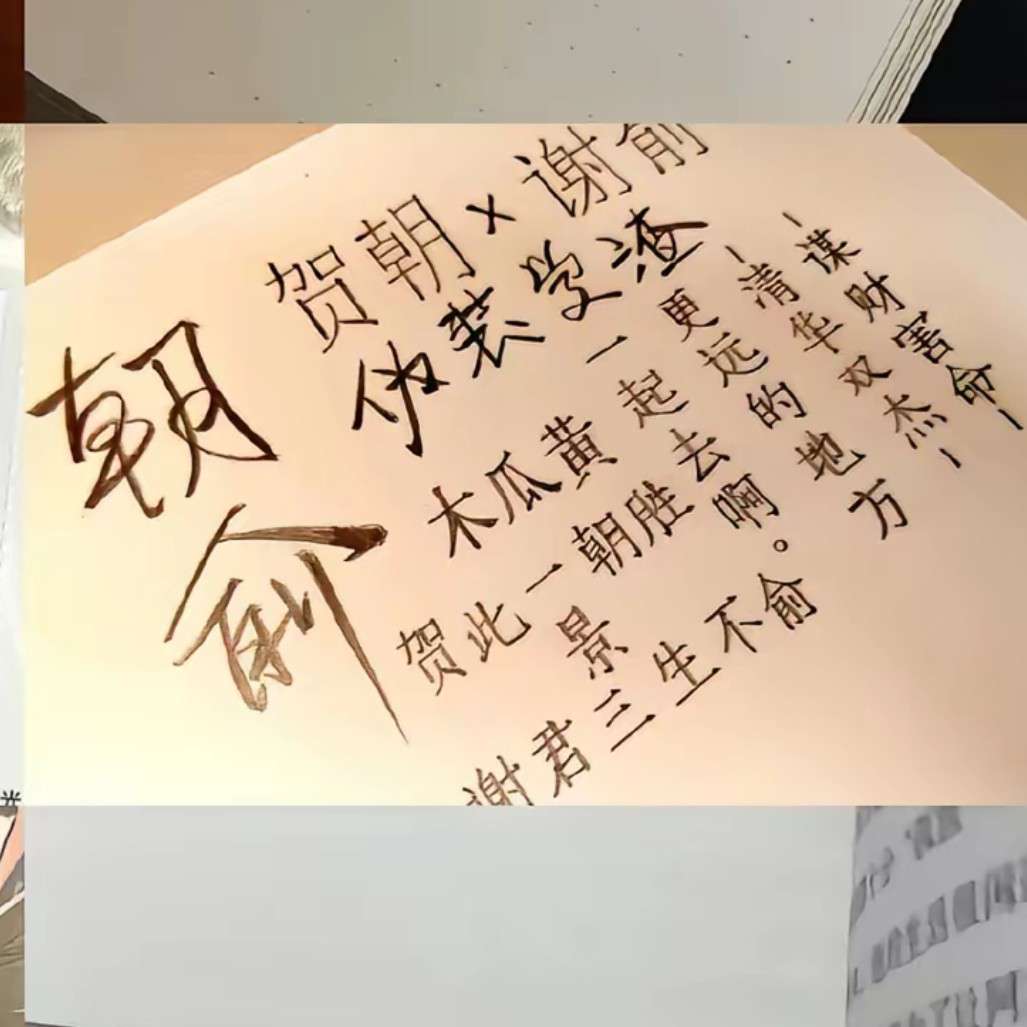 朝俞
贺朝×谢俞
伪装学渣
木瓜黄
一起去啊。
更远的地方
-清华双杰-
-谋财害命-
贺此一朝胜景
谢君三生不俞